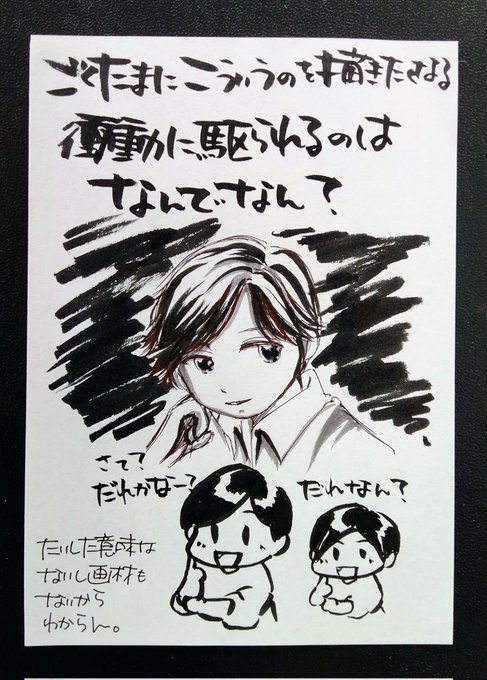 ごくたまにこういうのを描きたくなる
衝動に駆られるのは
なんでなん?
さて?
だれかなー?
だれなん?
たいした意味は
ないし画材も
ないから
わからん。